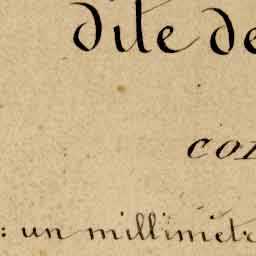 dite de
con
: un millimètre